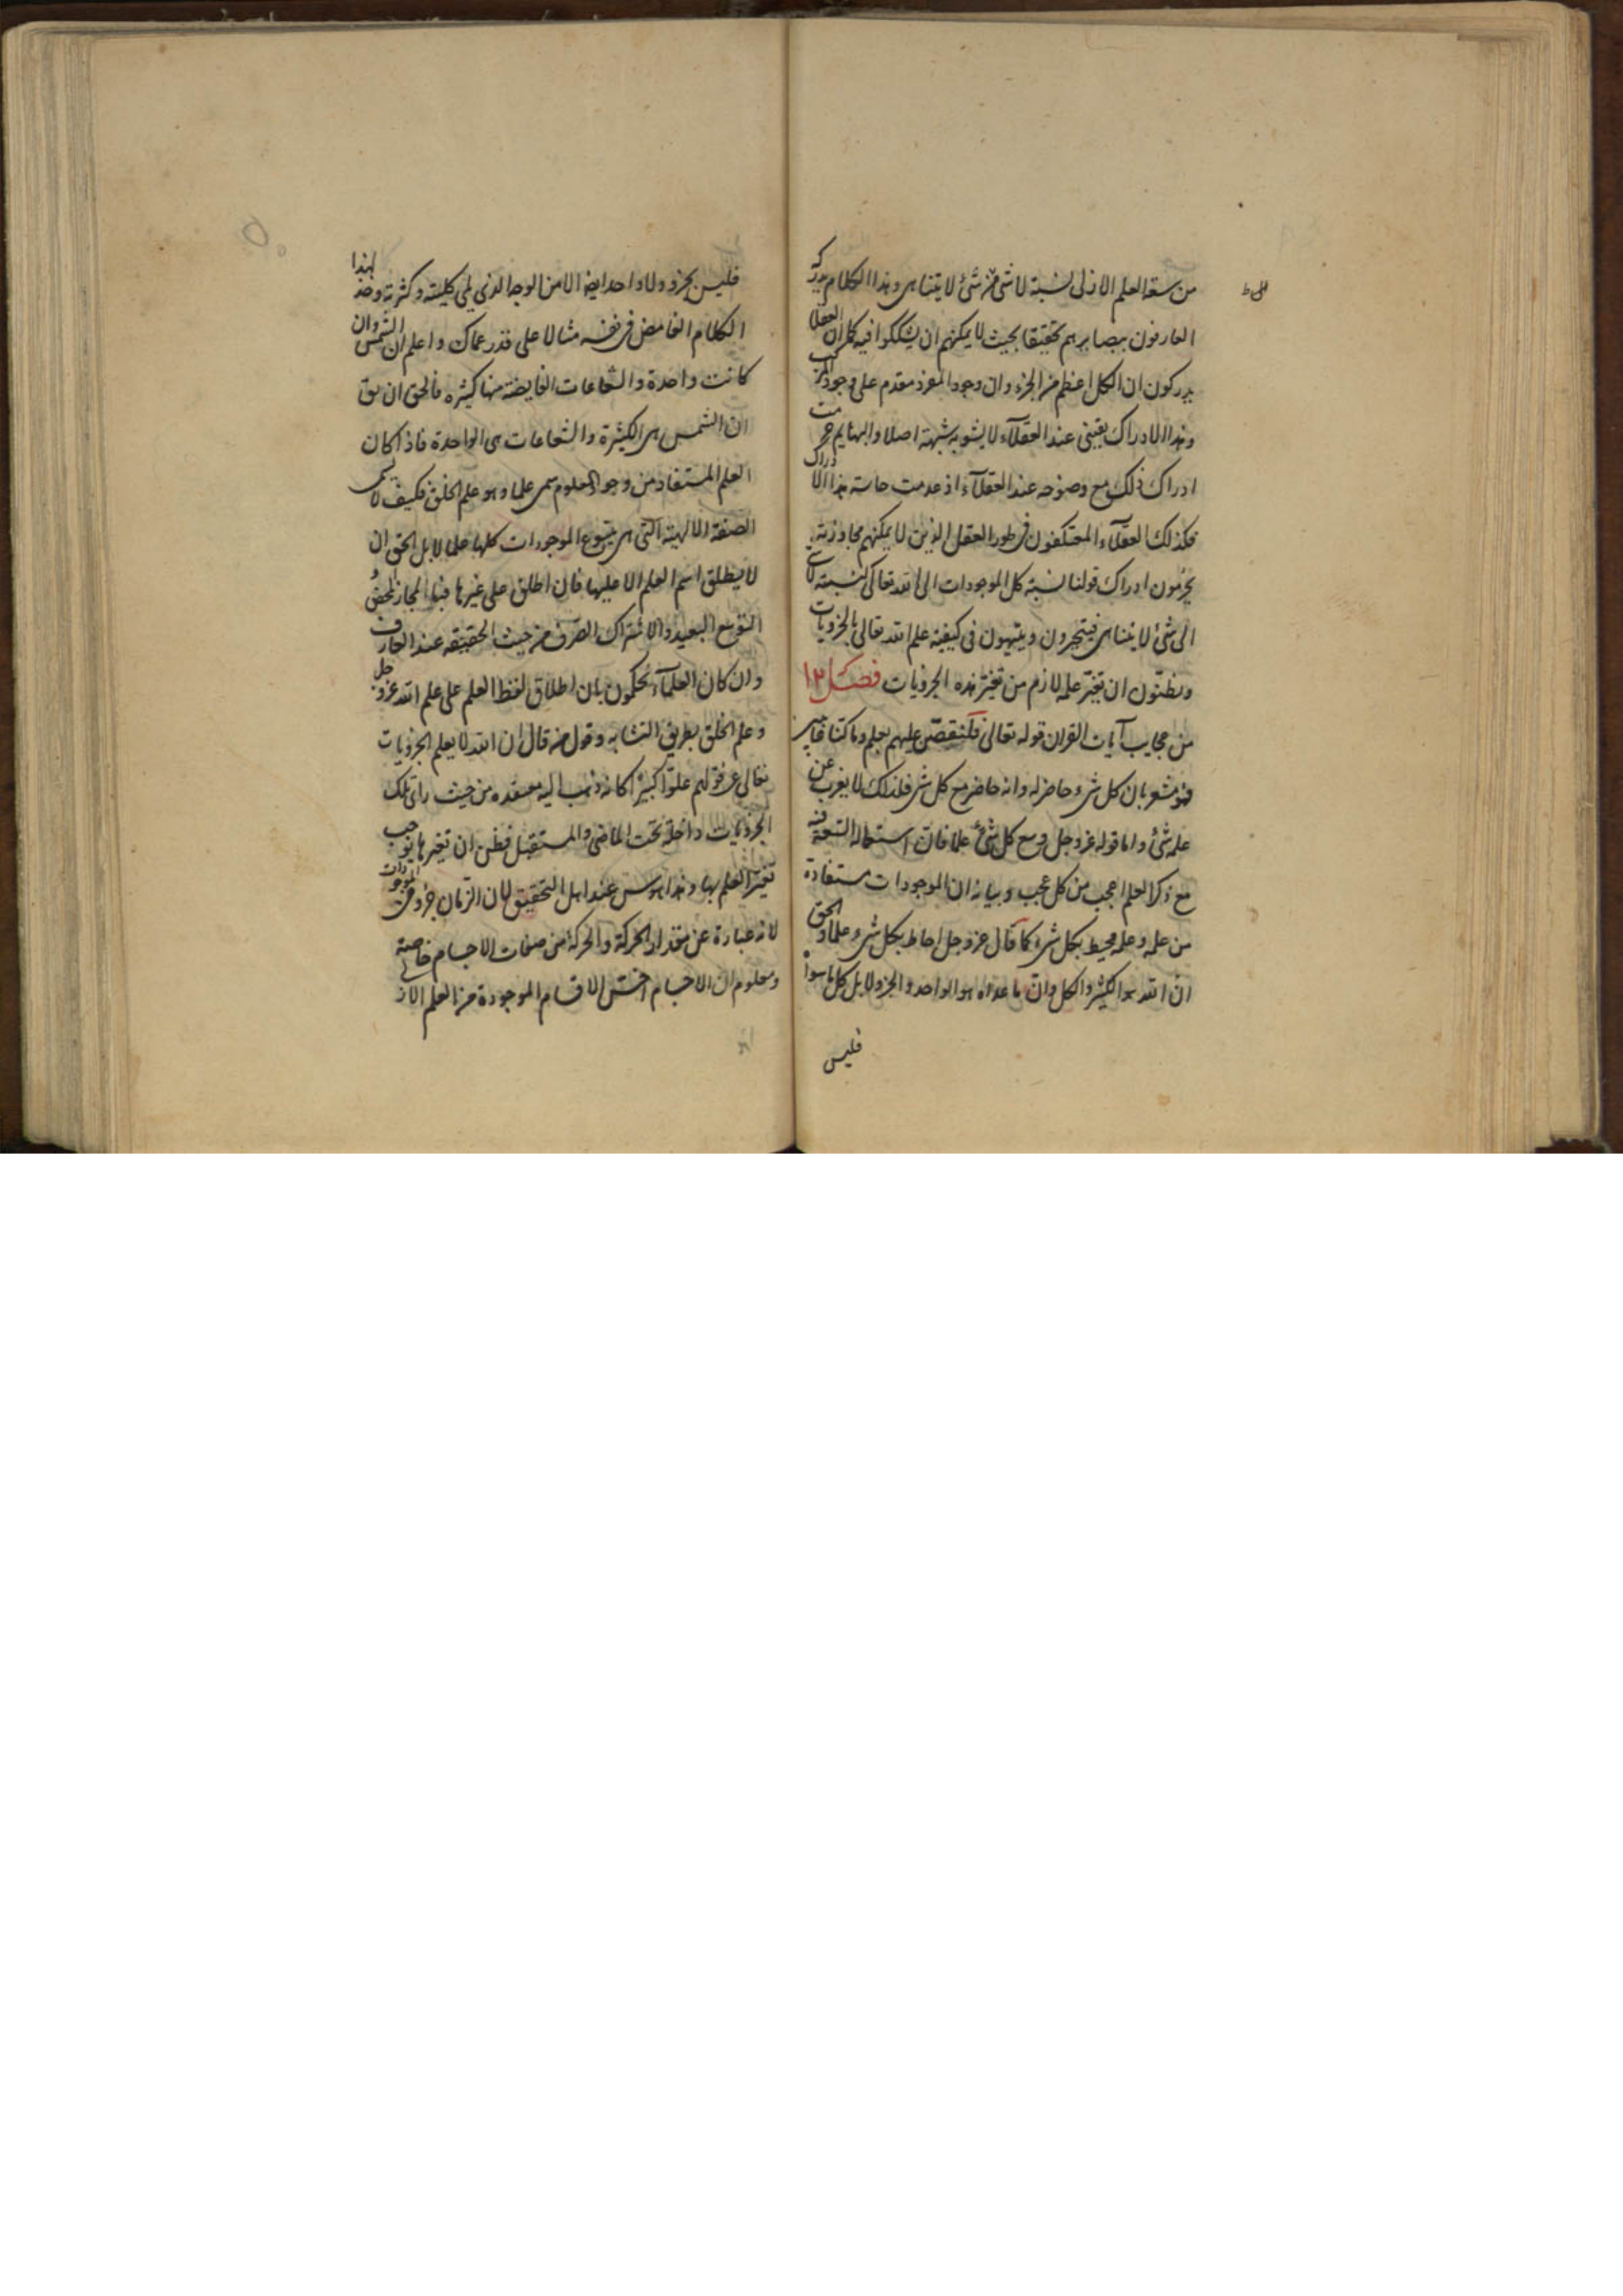 من سعة العلم الازلى نسبة لا شى من شئ لا يتناهى وهذا الكلام يدركه
العارفون ببصايرهم تحقيقا بحيث لا يمكنهم ان يشككوا فيه كما ان العقلا
يدركون ان الكل اعظم من الجزء وان وجود المفرد مقدم على وجود المركب
وهذا الادراك يقينى عند العقلآء لا يشوبه شبهة اصلا والبهايم حرمت
ادراك ذلك مع وضوحه عند العقلآء اذ عدمت حاسة هذا الادراك
فكذلك العقلآء المعتكفون فى طور العقل الذين لا يمكنهم مجاوزته
يحرمون ادراك قولنا نسبة كل الموجودات الى الله تعالى كنسبة لا شى
الى شئ لا يتناهى فيتحيرون ويتيهون فى كيفية علم الله تعالى بالجزويات
ويظنون ان تغير علمه لازم من تغير هذه الجزويات فصل ١٣
من عجايب آيات القران قوله تعالى فلنقصّن عليهم بعلم وما كنا غايبين
فهو مشعر بان كل شىء حاضر له وانه حاضر مع كل شى فلذلك لا يعزب عن
علمه شئ واما قوله عز وجل وسع كل شئ علما فان استعمالة السعة فيه
مع ذكر العلم اعجب من كل عجب وبيانه ان الموجودات مستفادة
من علمه وعلمه محيط بكل شىء كما قال عز وجل احاط بكل شىء علما والحق
ان الله هو الكثير والكل وان ما عداه هو الواحد والجزو لا بل كل ما سواه
فليس
فليس بجزو ولا واحد ايضا الا من الوجه الذى يلى كليته وكثرته وخذ لهذا
الكلام الغامض فى نفسه مثالا على قدر عماك واعلم ان الشمس وان
كانت واحدة والشعاعات الفايضة منها كثيره فالحق ان يق
ان الشمس هى الكثيرة والشعاعات هى الواحدة فاذا كان
العلم المستفاد من وجود المعلوم سمى علما وهو علم الخلق فكيف لا يسمى
الصفة الالهية التى هى ينبوع الموجودات كلها علما لا بل الحق ان
لا يطلق اسم العلم الا عليها فان اطلق على غيرها فبالمجاز المحض
التوسع البعيد والاشتراك الصرف من حيث الحقيقه عند العارف
وان كان العلمآء يحكمون بان اطلاق لفظ العلم على علم الله عز وجل
وعلم الخلق بطريق التشابه وقول من قال ان الله لا يعلم الجزويات
تعالى عن قولهم علوّا كبيرا كانه ذهب اليه معتقده من حيث راى تلك
الجزويات داخلة تحت الماضى والمستقبل فظن ان تغيرها يوجب
تغير العلم بها وهذا هوس عند اهل التحقيق لان الزمان جزو من الموجودات
لانه عبارة عن مقدار الحركة والحركة من صفات الاجسام خاصة
ومعلوم ان الاجسام اخسّ الاقسام الموجودة من العلم الاز